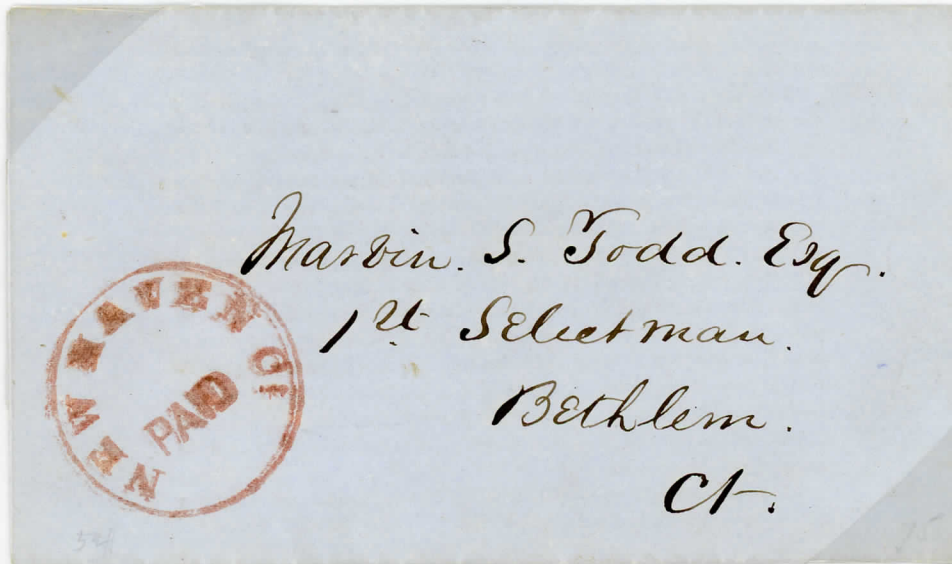 Marvin. S. Todd. Esq.
1st Selectman.
Bethlem.
Ct.
NEW HAVEN Ct
PAID